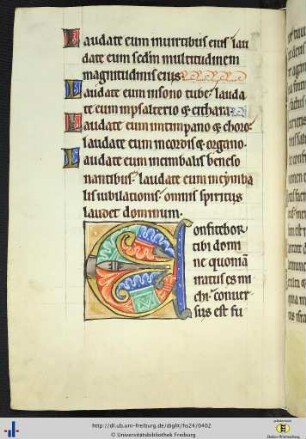 Laudate eum invirtutibus eius lau
date eum scdm multitudinem
magnitudinis eius
Laudate eum insono tube lauda
te eum inpsalterio & cithara
Laudate eum intimpano & choro
laudate eum incordis & organo
Laudate eum incimbalis beneso
nantibus laudate eum incymba
lis iubilationis omnis spiritus
laudet dominum
Confitebor
tibi domi
ne quoniā
iratus es mi
chi conver
sus est fu
http://dl.ub.uni-freiburg.de/diglit/hs24/0402
© Universitätsbibliothek Freiburg